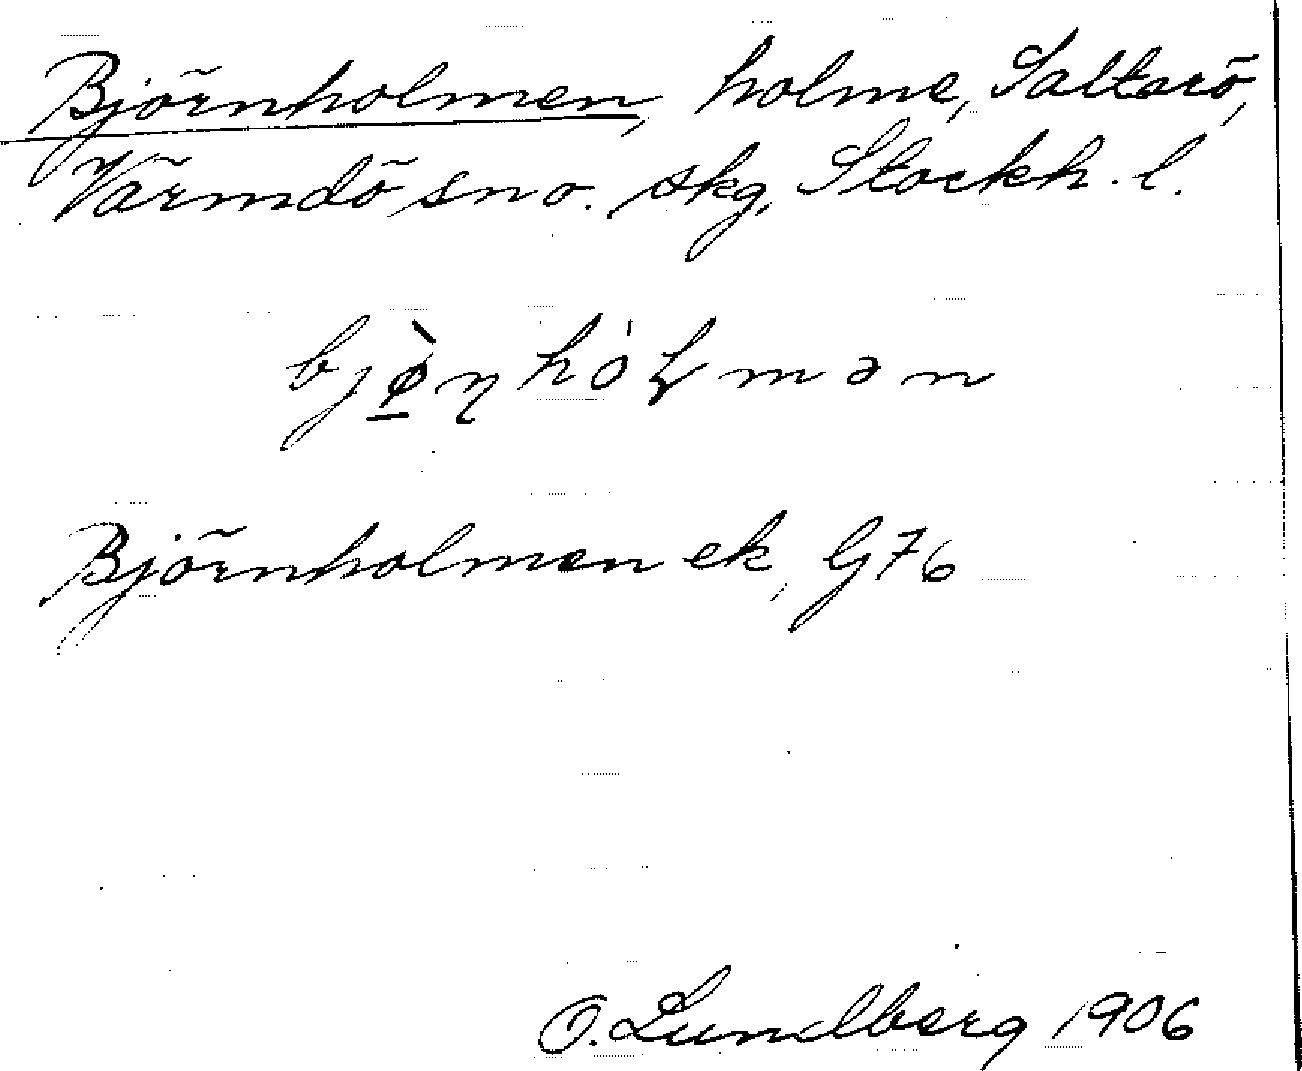 Björnholmen, holme, Saltarö,
Värmdö sn o. skg, Stockh. l.
bjø̱̀ɳhòɫmən
Björnholmen ek, G76
O. Lundberg 1906